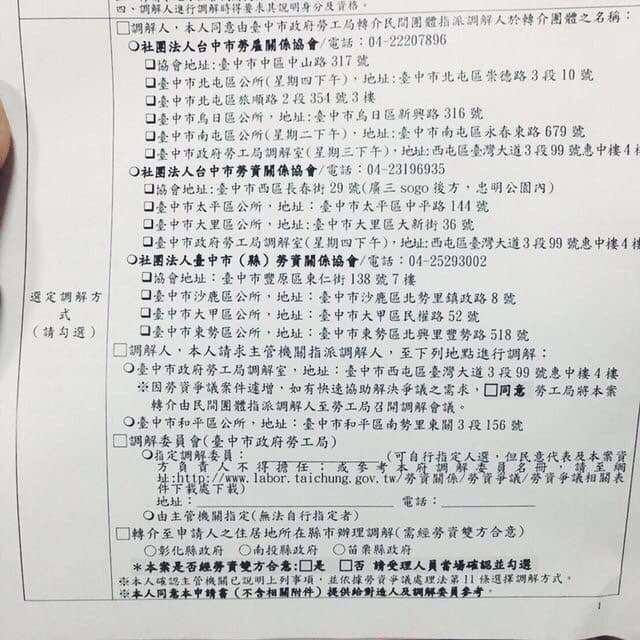 四、調解人進行調解時得要求其說明身分及資格。
選定調解方
式
(請勾選)
□調解人，本人同意由臺中市政府勞工局轉介民間團體指派調解人於轉介團體之名稱：
○社團法人台中市勞雇關係協會/電話：04-22207896
□協會地址:臺中市中區中山路 317 號
□臺中市北屯區公所(星期四下午)，地址:臺中市北屯區崇德路 3 段 10 號
□臺中市北屯區旅順路 2 段 354 號 3 樓
□臺中市烏日區公所，地址:臺中市烏日區新興路 316 號
□臺中市南屯區公所(星期二下午)，地址:臺中市南屯區永春東路 679 號
□臺中市政府勞工局調解室(星期三下午)，地址:西屯區臺灣大道 3 段 99 號惠中樓 4 樓
○社團法人台中市勞資關係協會/電話：04-23196935
□協會地址:臺中市西區長春街 29 號(廣三 sogo 後方，忠明公園內)
□臺中市太平區公所，地址：臺中市太平區中平路 144 號
□臺中市大里區公所，地址:臺中市大里區大新街 36 號
□臺中市政府勞工局調解室(星期四下午)，地址:西屯區臺灣大道 3 段 99 號惠中樓 4
○社團法人臺中市（縣）勞資關係協會/電話：04-25293002
□協會地址：臺中市豐原區東仁街 138 號 7 樓
□臺中市沙鹿區公所，地址：臺中市沙鹿區北勢里鎮政路 8 號
□臺中市大甲區公所，地址：臺中市大甲區民權路 52 號
□臺中市東勢區公所，地址：臺中市東勢區北興里豐勢路 518 號
□調解人，本人請求主管機關指派調解人，至下列地點進行調解：
○臺中市政府勞工局調解室，地址：臺中市西屯區臺灣大道 3 段 99 號惠中樓 4 樓
※因勞資爭議案件遽增，如有快速協助解決爭議之需求，□同意 勞工局將本案
轉介由民間團體指派調解人至勞工局召開調解會議。
○臺中市和平區公所，地址：臺中市和平區南勢里東關路 3 段 156 號
□調解委員會(臺中市政府勞工局)
○指定調解委員：＿＿＿＿＿＿＿＿(可自行指定人選，但民意代表及本案資
方負責人不得擔任；或參考本府調解委員名冊，請至網
址:http://www.labor.taichung.gov.tw/勞資關係/勞資爭議/勞資爭議相關表
件下載處下載)
地址：＿＿＿＿＿＿＿＿ 電話：＿＿＿＿＿＿＿＿
○由主管機關指定(無法自行指定者)
□轉介至申請人之住居地所在縣市辦理調解(需經勞資雙方合意)
○彰化縣政府 ○南投縣政府 ○苗栗縣政府
*本案是否經勞資雙方合意:□是 □否 請受理人員當場確認並勾選
※本人確認主管機關已說明上列事項，並依據勞資爭議處理法第 11 條選擇調解方式。
※本人同意本申請書（不含相關附件）提供給對造人及調解委員參考。
1